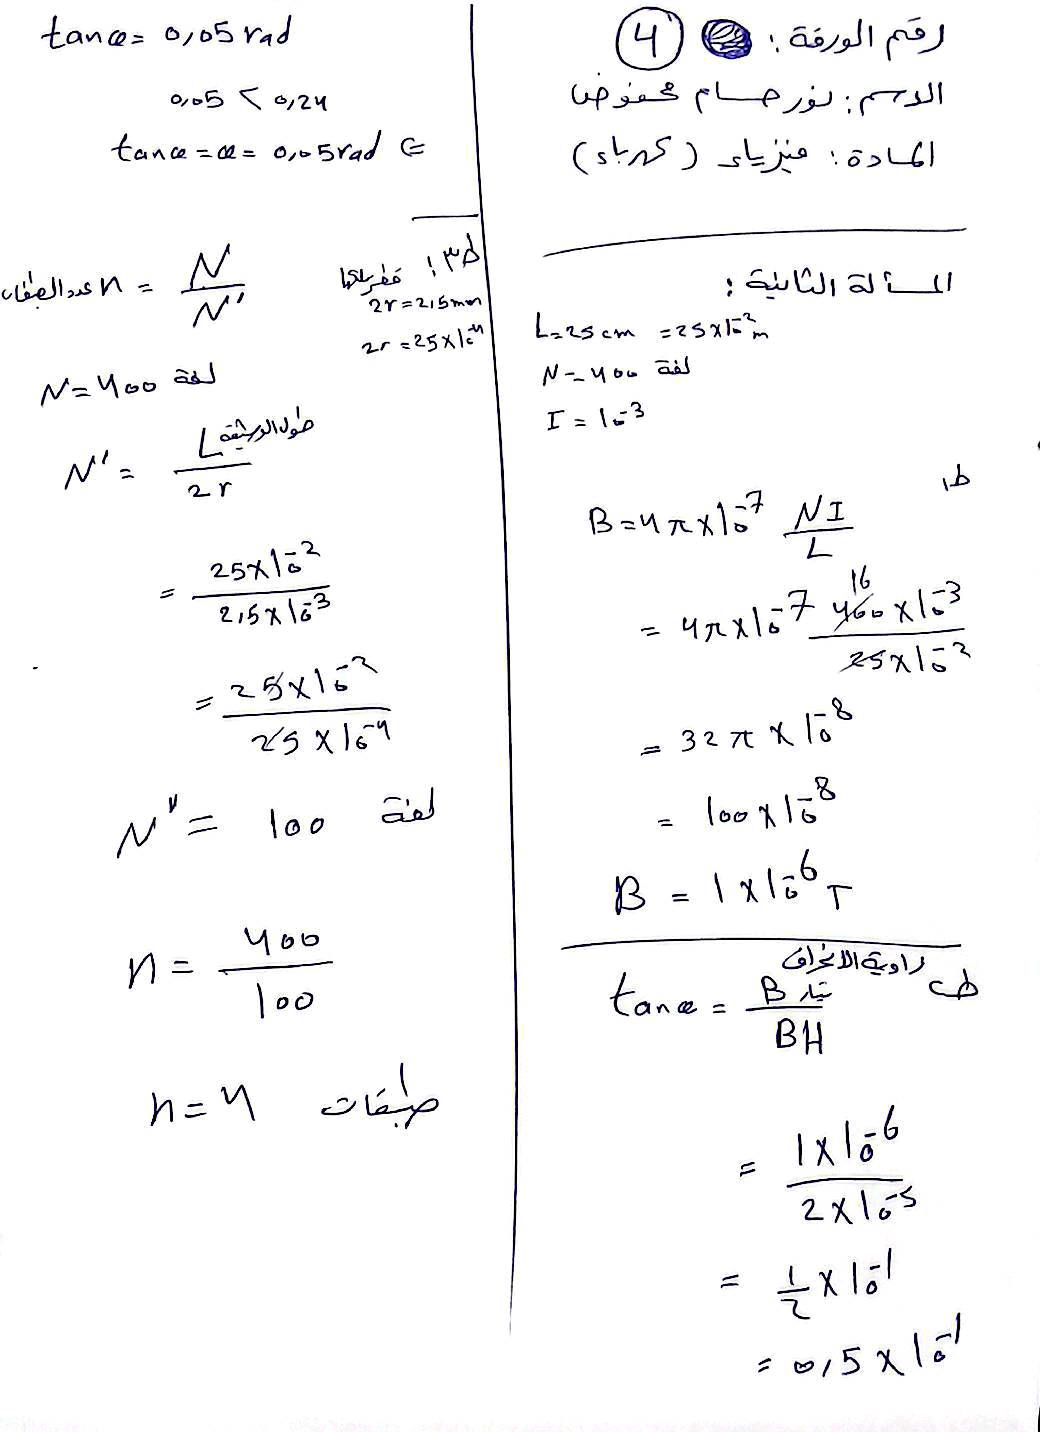 رقم الورقة: 4
الاسم: نور حسام محفوض
المادة: فيزياء (كهرباء)
المسألة الثانية:
L=25 cm = 25x10^-2 m
N=400 لفة
I = 10^-3
ط1
B=4π x 10^-7 NI/L
= 4π x 10^-7 (400 x 10^-3)/(25x10^-2) 16
= 32π x 10^-8
= 100 x 10^-8
B = 1 x 10^-6 T
ط2 زاوية الانحراف
tanα = B تيار / BH
= (1x10^-6)/(2x10^-5)
= 1/2 x 10^-1
= 0,5 x 10^-1
tanα= 0,05 rad
0,05 < 0,24
tanα=α= 0,05 rad ⇐
ط3: قطر سلكها
2r = 2,5 mm
2r = 25x10^-4
عدد الطبقات n = N/N'
N=400 لفة
N' = L طول الوشيعة / 2r
= (25x10^-2)/(2,5x10^-3)
= (25x10^-2)/(25x10^-4)
N' = 100 لفة
n = 400/100
n=4 طبقات